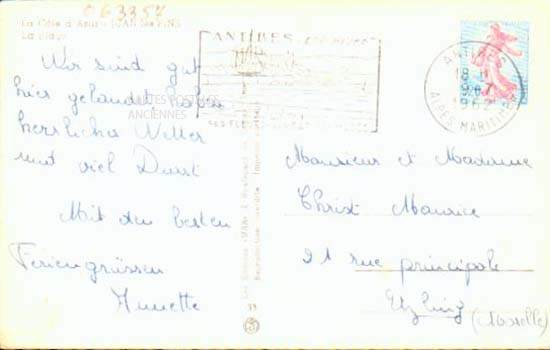 063354
La Côte d'Azur - JUAN-les-PINS
La Plage
Wir sind gut
hier gelandet haben
herrliches Wetter
und viel Durst
Mit den besten
Feriengrüssen
Annette
ANTIBES
CARTES POSTALES
ANCIENNES
ANTIBES
18 H
1962
ALPES MARITIMES
Monsieur et Madame
Christ Maurice
21 rue principale
Etzling (Moselle)